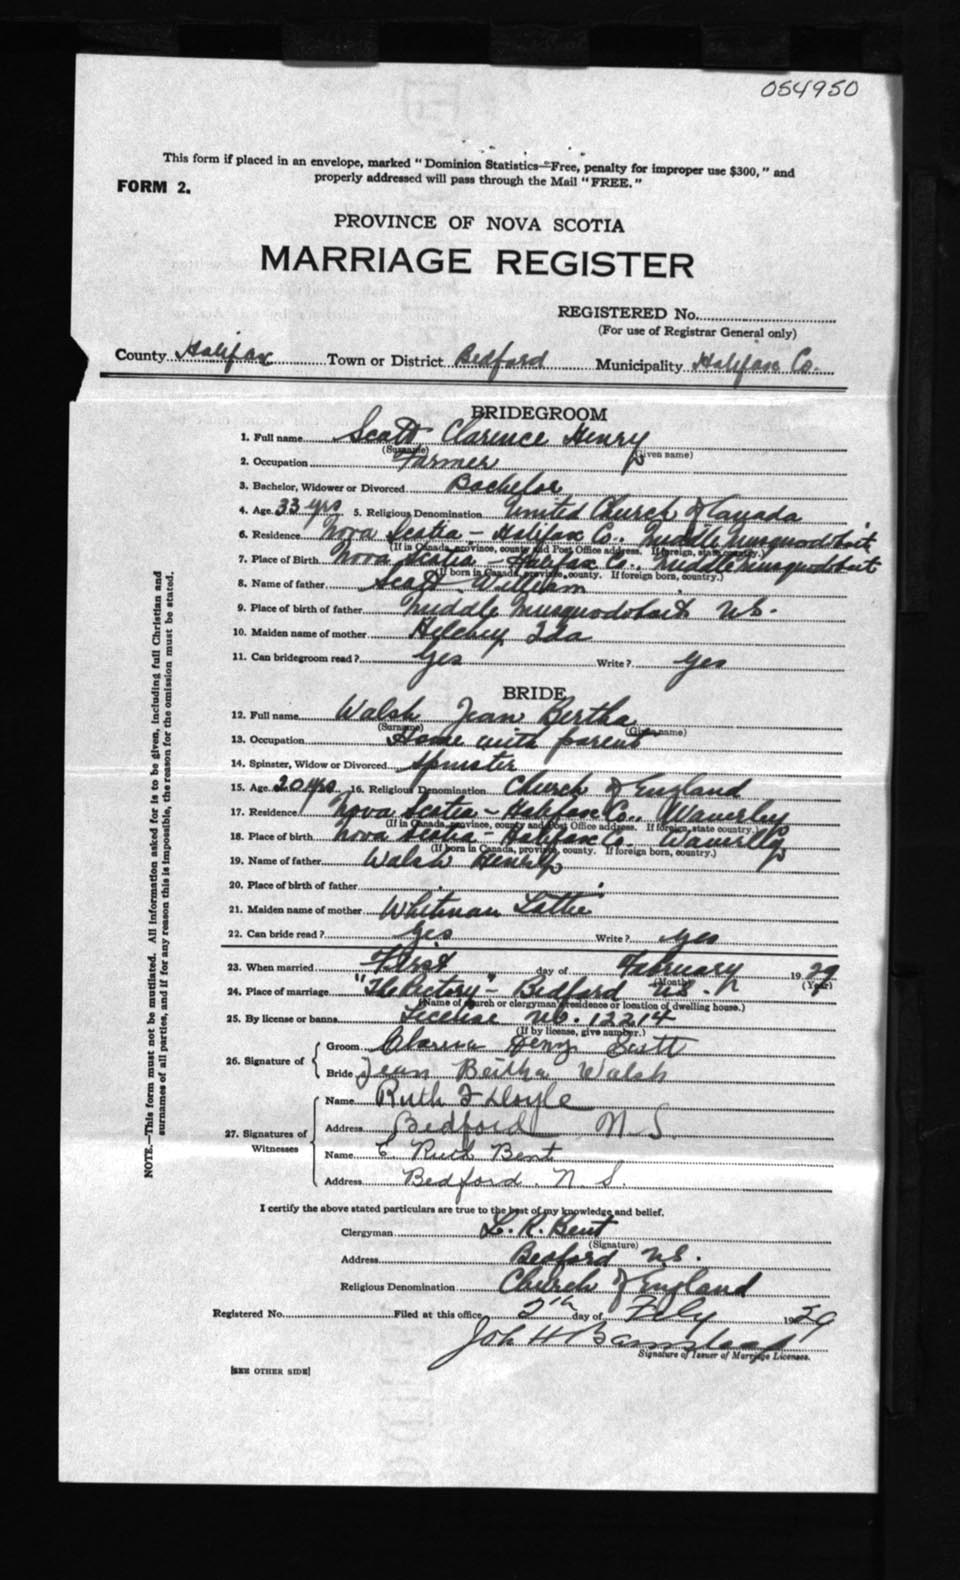 054950
This form if placed in an envelope, marked "Dominion Statistics—Free, penalty for improper use $300," and
properly addressed will pass through the Mail "FREE."
FORM 2.
PROVINCE OF NOVA SCOTIA
MARRIAGE REGISTER
REGISTERED No.
(For use of Registrar General only)
County Halifax Town or District Bedford Municipality Halifax Co.
BRIDEGROOM
1. Full name Scott Clarence Henry
(Surname) (Given name)
2. Occupation Farmer
3. Bachelor, Widower or Divorced Bachelor
4. Age 33 yrs 5. Religious Denomination United Church of Canada
6. Residence Nova Scotia - Halifax Co., Middle Musquodoboit
(If in Canada, province, county and Post Office address. If foreign, state country.)
7. Place of Birth Nova Scotia - Halifax Co., Middle Musquodoboit
(If born in Canada, province, county. If foreign born, country.)
8. Name of father Scott William
9. Place of birth of father Middle Musquodoboit N.S.
10. Maiden name of mother Ida
11. Can bridegroom read? Yes Write? Yes
BRIDE
12. Full name Walsh Jean Bertha
(Surname) (Given name)
13. Occupation Home with parent
14. Spinster, Widow or Divorced Spinster
15. Age 20 yrs 16. Religious Denomination Church of England
17. Residence Nova Scotia - Halifax Co., Waverley
(If in Canada, province, county and Post Office address. If foreign, state country.)
18. Place of birth Nova Scotia - Halifax Co. Waverlly
(If born in Canada, province, county. If foreign born, country.)
19. Name of father Walsh Henry
20. Place of birth of father
21. Maiden name of mother Whitman Lottie
22. Can bride read? Yes Write? Yes
23. When married First day of February 1929
(Month) (Year)
24. Place of marriage "The Rectory" - Bedford N.S.
(Name of church or clergyman's residence or location of dwelling house.)
25. By license or banns License No. 12214
(If by license, give number.)
26. Signature of
Groom Henry Scott
Bride Jean Bertha Walsh
27. Signatures of Witnesses
Name Ruth F Doyle
Address Bedford N.S.
Name C. Ruth Bent
Address Bedford. N.S.
I certify the above stated particulars are true to the best of my knowledge and belief.
Clergyman L. R. Bent
(Signature)
Address Bedford N.S.
Religious Denomination Church of England
Registered No. Filed at this office 2th day of Feby 1929
Signature of Issuer of Marriage Licenses.
[SEE OTHER SIDE]
NOTE.—This form must not be mutilated. All information asked for is to be given, including full Christian and
surnames of all parties, and if for any reason this is impossible, the reason for the omission must be stated.